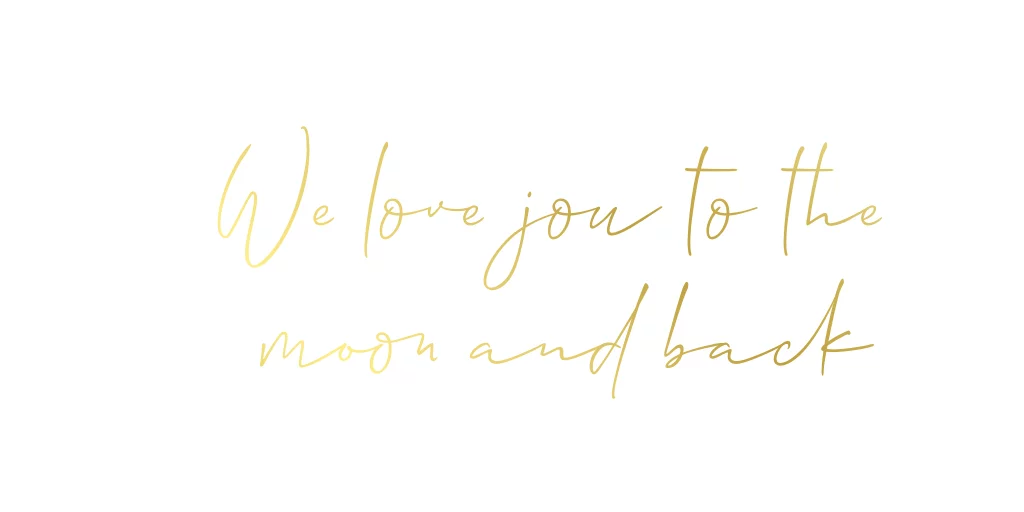 We love jou to the
moon and back